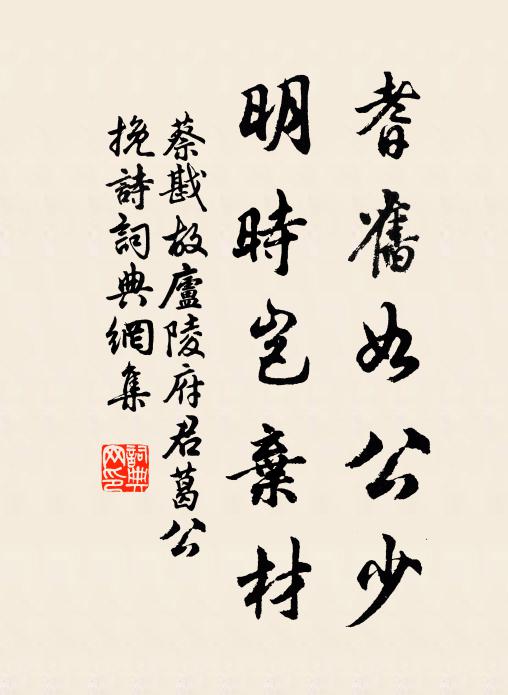 耆舊如公少
明時豈棄材
蔡戡故廬陵府君葛公
挽詩詞典網集
詞典
网印